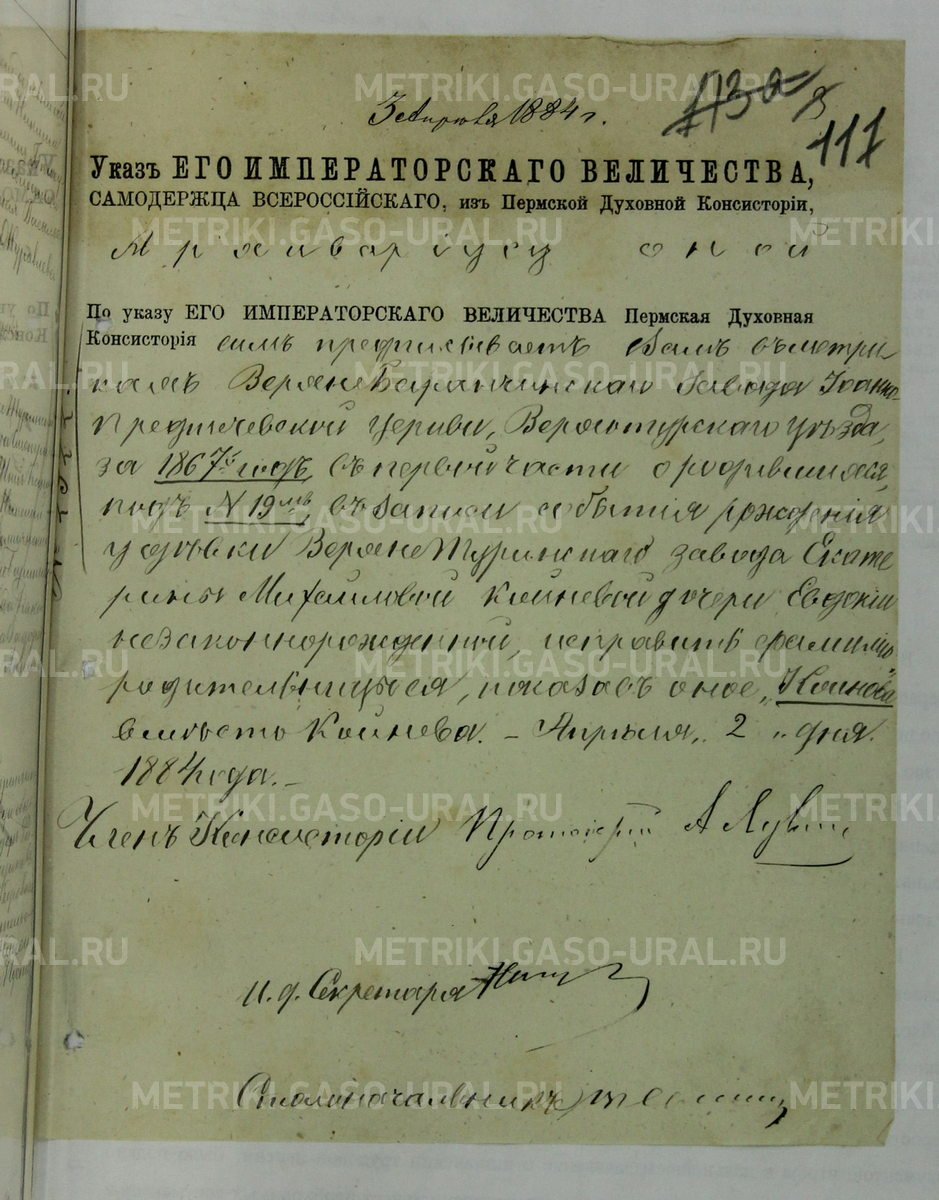 3 Апреля 1884 г.
117
Указъ ЕГО ИМПЕРАТОРСКАГО ВЕЛИЧЕСТВА,
САМОДЕРЖЦА ВСЕРОССІЙСКАГО, изъ Пермской Духовной Консисторіи,
Архиваріусу оной
По указу ЕГО ИМПЕРАТОРСКАГО ВЕЛИЧЕСТВА Пермская Духовная
Консисторія симъ предписываетъ Вамъ въ метри
кахъ Верхне Баранчинскаго завода Іоанно
Предтечевской церкви, Верхотурскаго уѣзда,
за 1867й годъ, въ первой части о родившихся,
подъ N 19мъ, въ записи событія рожденія
Верхне Туринскаго завода Екате
рины Михайловой Койневой дочери Евдокіи
незаконнорожденной, исправить фамилію
родительницы ея, показавъ оное „Коинова“
вмѣсто Койнева. – Апрѣля „ 2 „ дня
1884 года. –
Членъ Консисторіи Протоіерей А Луканинъ
И. д. Секретаря
Столоначальникъ
METRIKI.GASO-URAL.RU